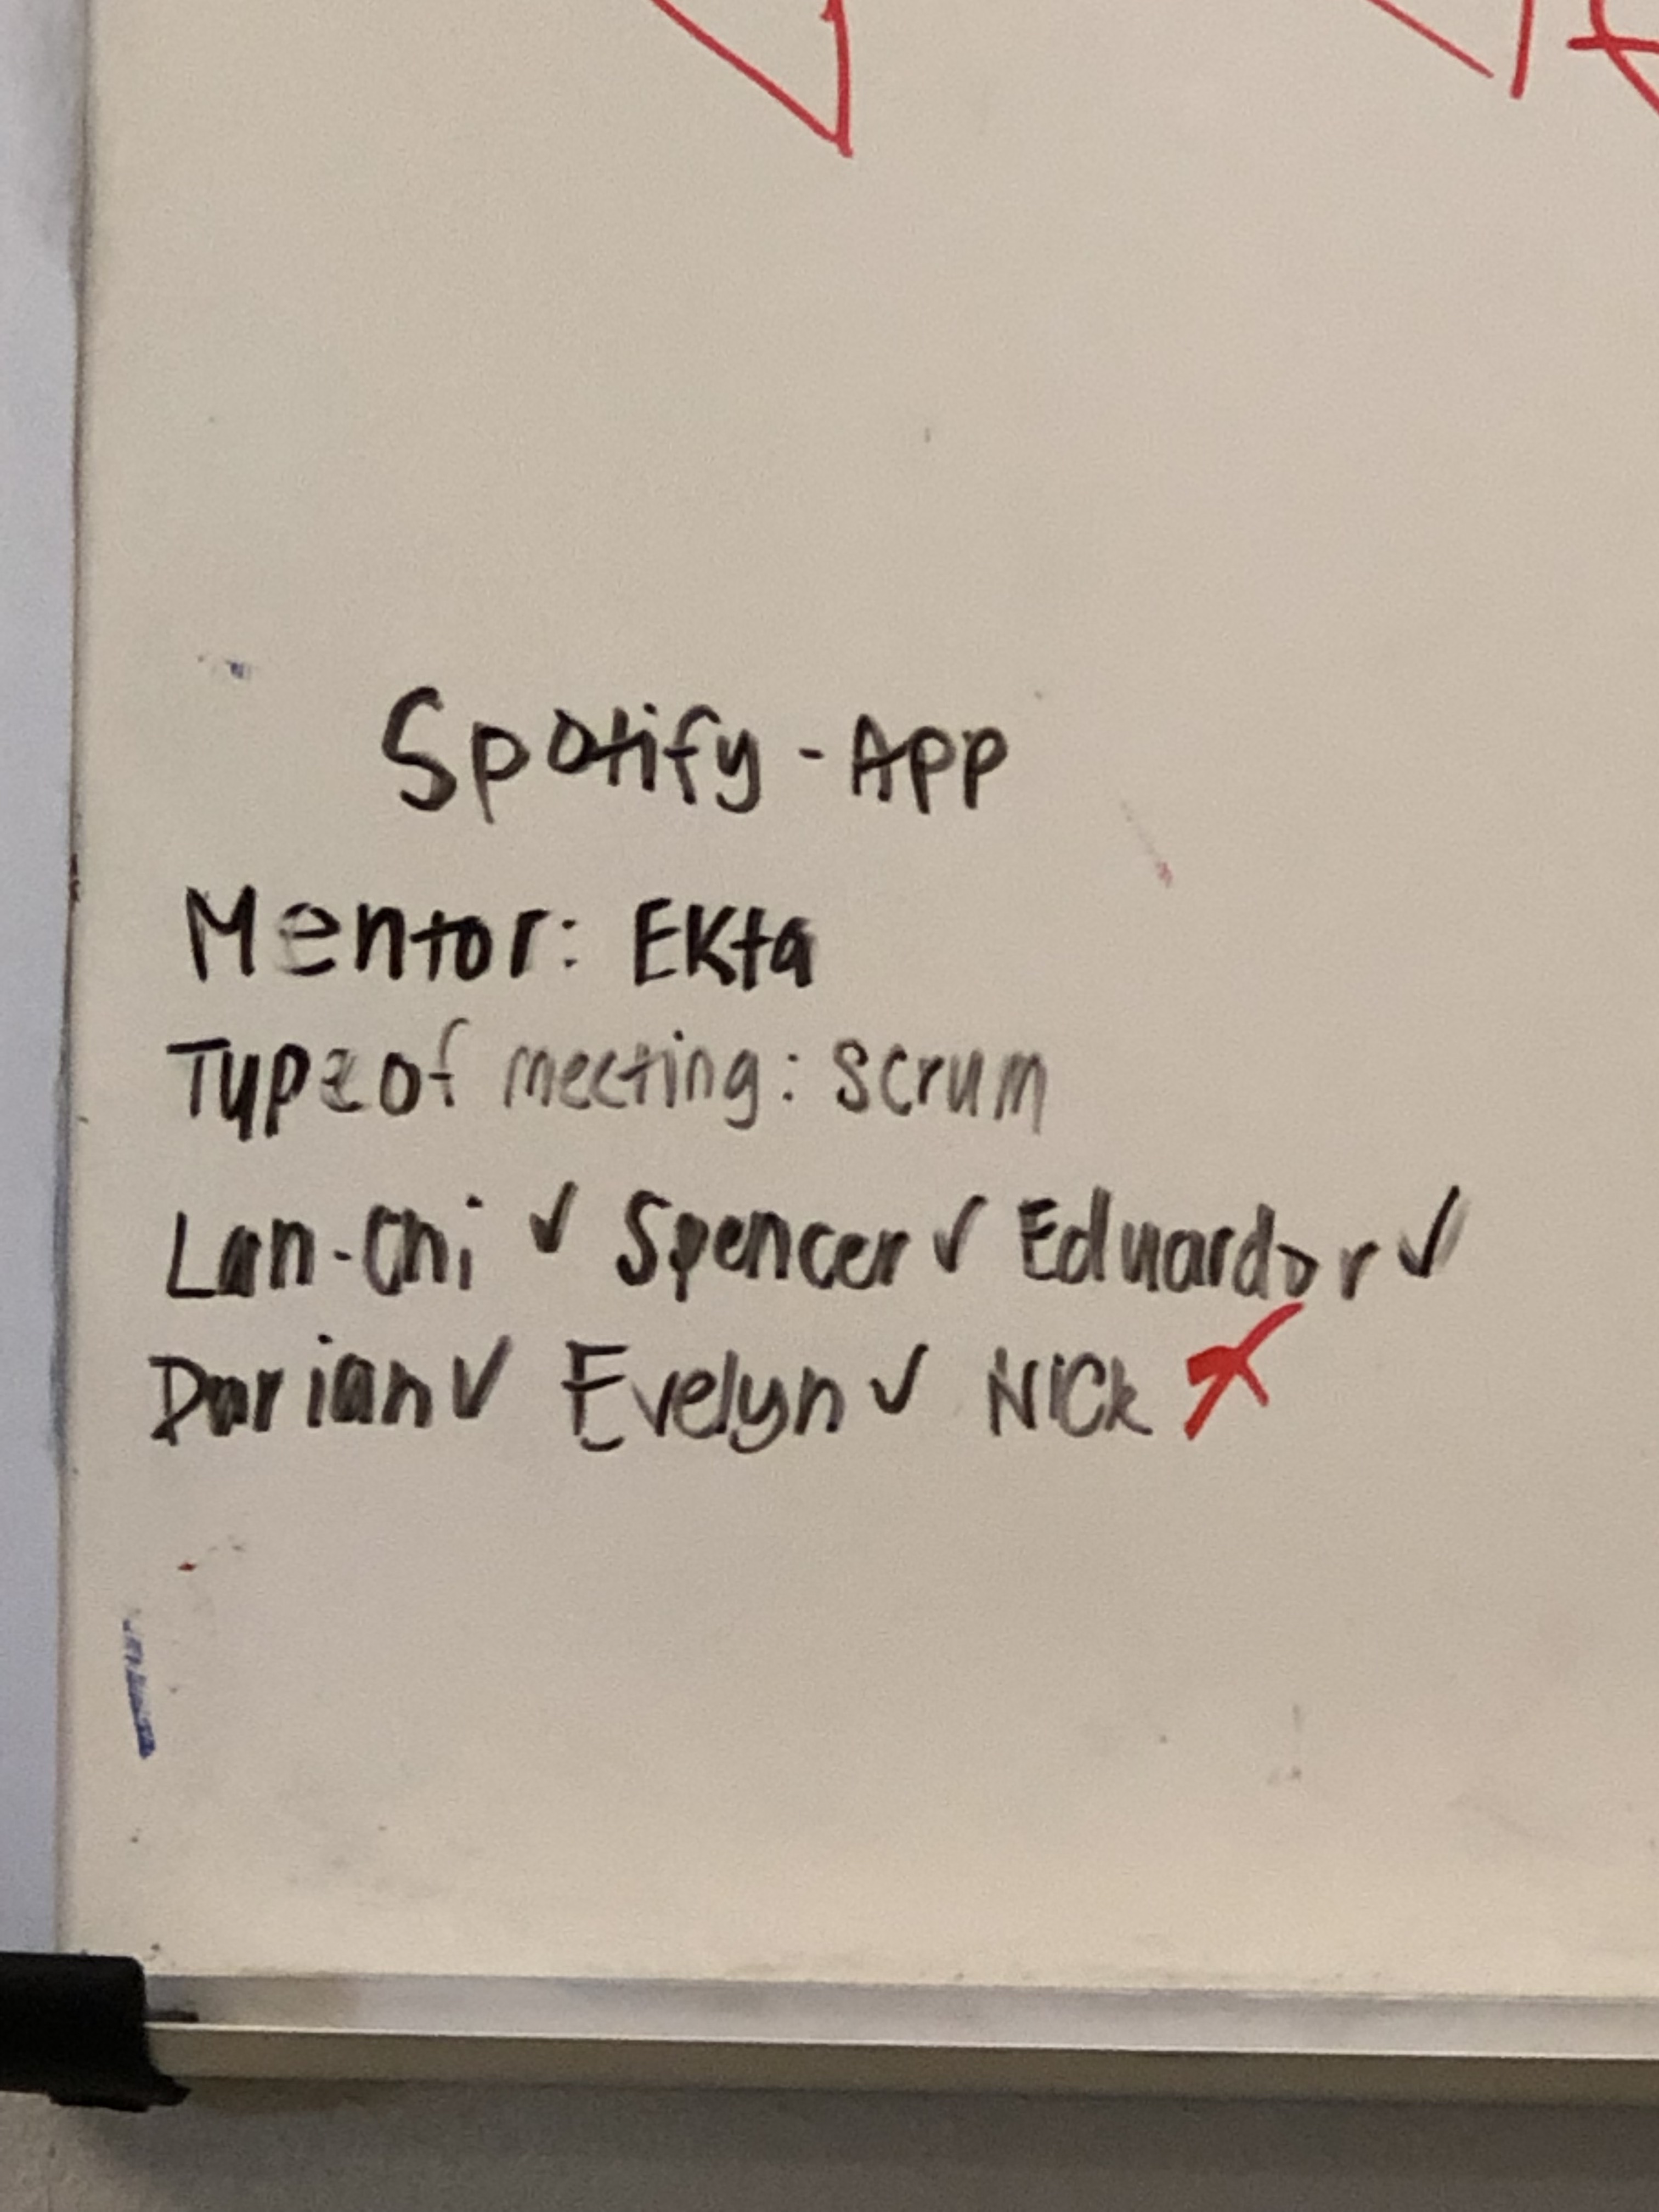 Spotify - App
Mentor: Ekta
Type of meeting: scrum
Lan-Chi ✓ Spencer ✓ Eduardor ✓
Darian ✓ Evelyn ✓ Nick ✗